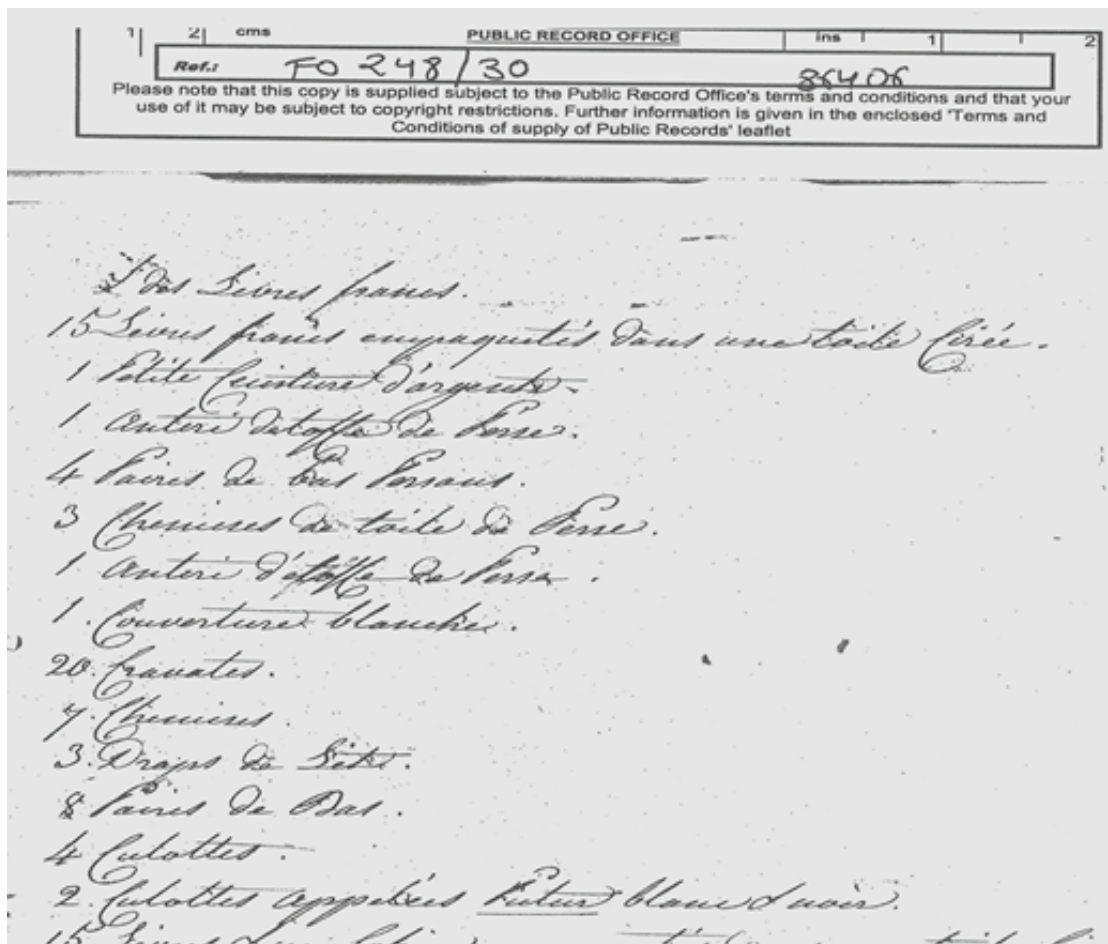 1 2 cms PUBLIC RECORD OFFICE ins 1 2
Ref.: FO 248/30 86406
Please note that this copy is supplied subject to the Public Record Office's terms and conditions and that your
use of it may be subject to copyright restrictions. Further information is given in the enclosed 'Terms and
Conditions of supply of Public Records' leaflet
des Livres francs.
15 Livres francs empaquetés dans une toile Cirée.
1 Petite Ceinture d'argent.
1 anteri d'etoffe de Perse.
4 Paires de bas Persans.
3 Chemises de toile de Perse.
1 anteri d'étoffe de Perse.
1. Couverture blanche.
20. Cravates.
7. Chemises.
3. Draps de Lits.
8 Paires de Bas.
4 Culottes.
2. Culottes appelées blanc & noir.
15 Livres